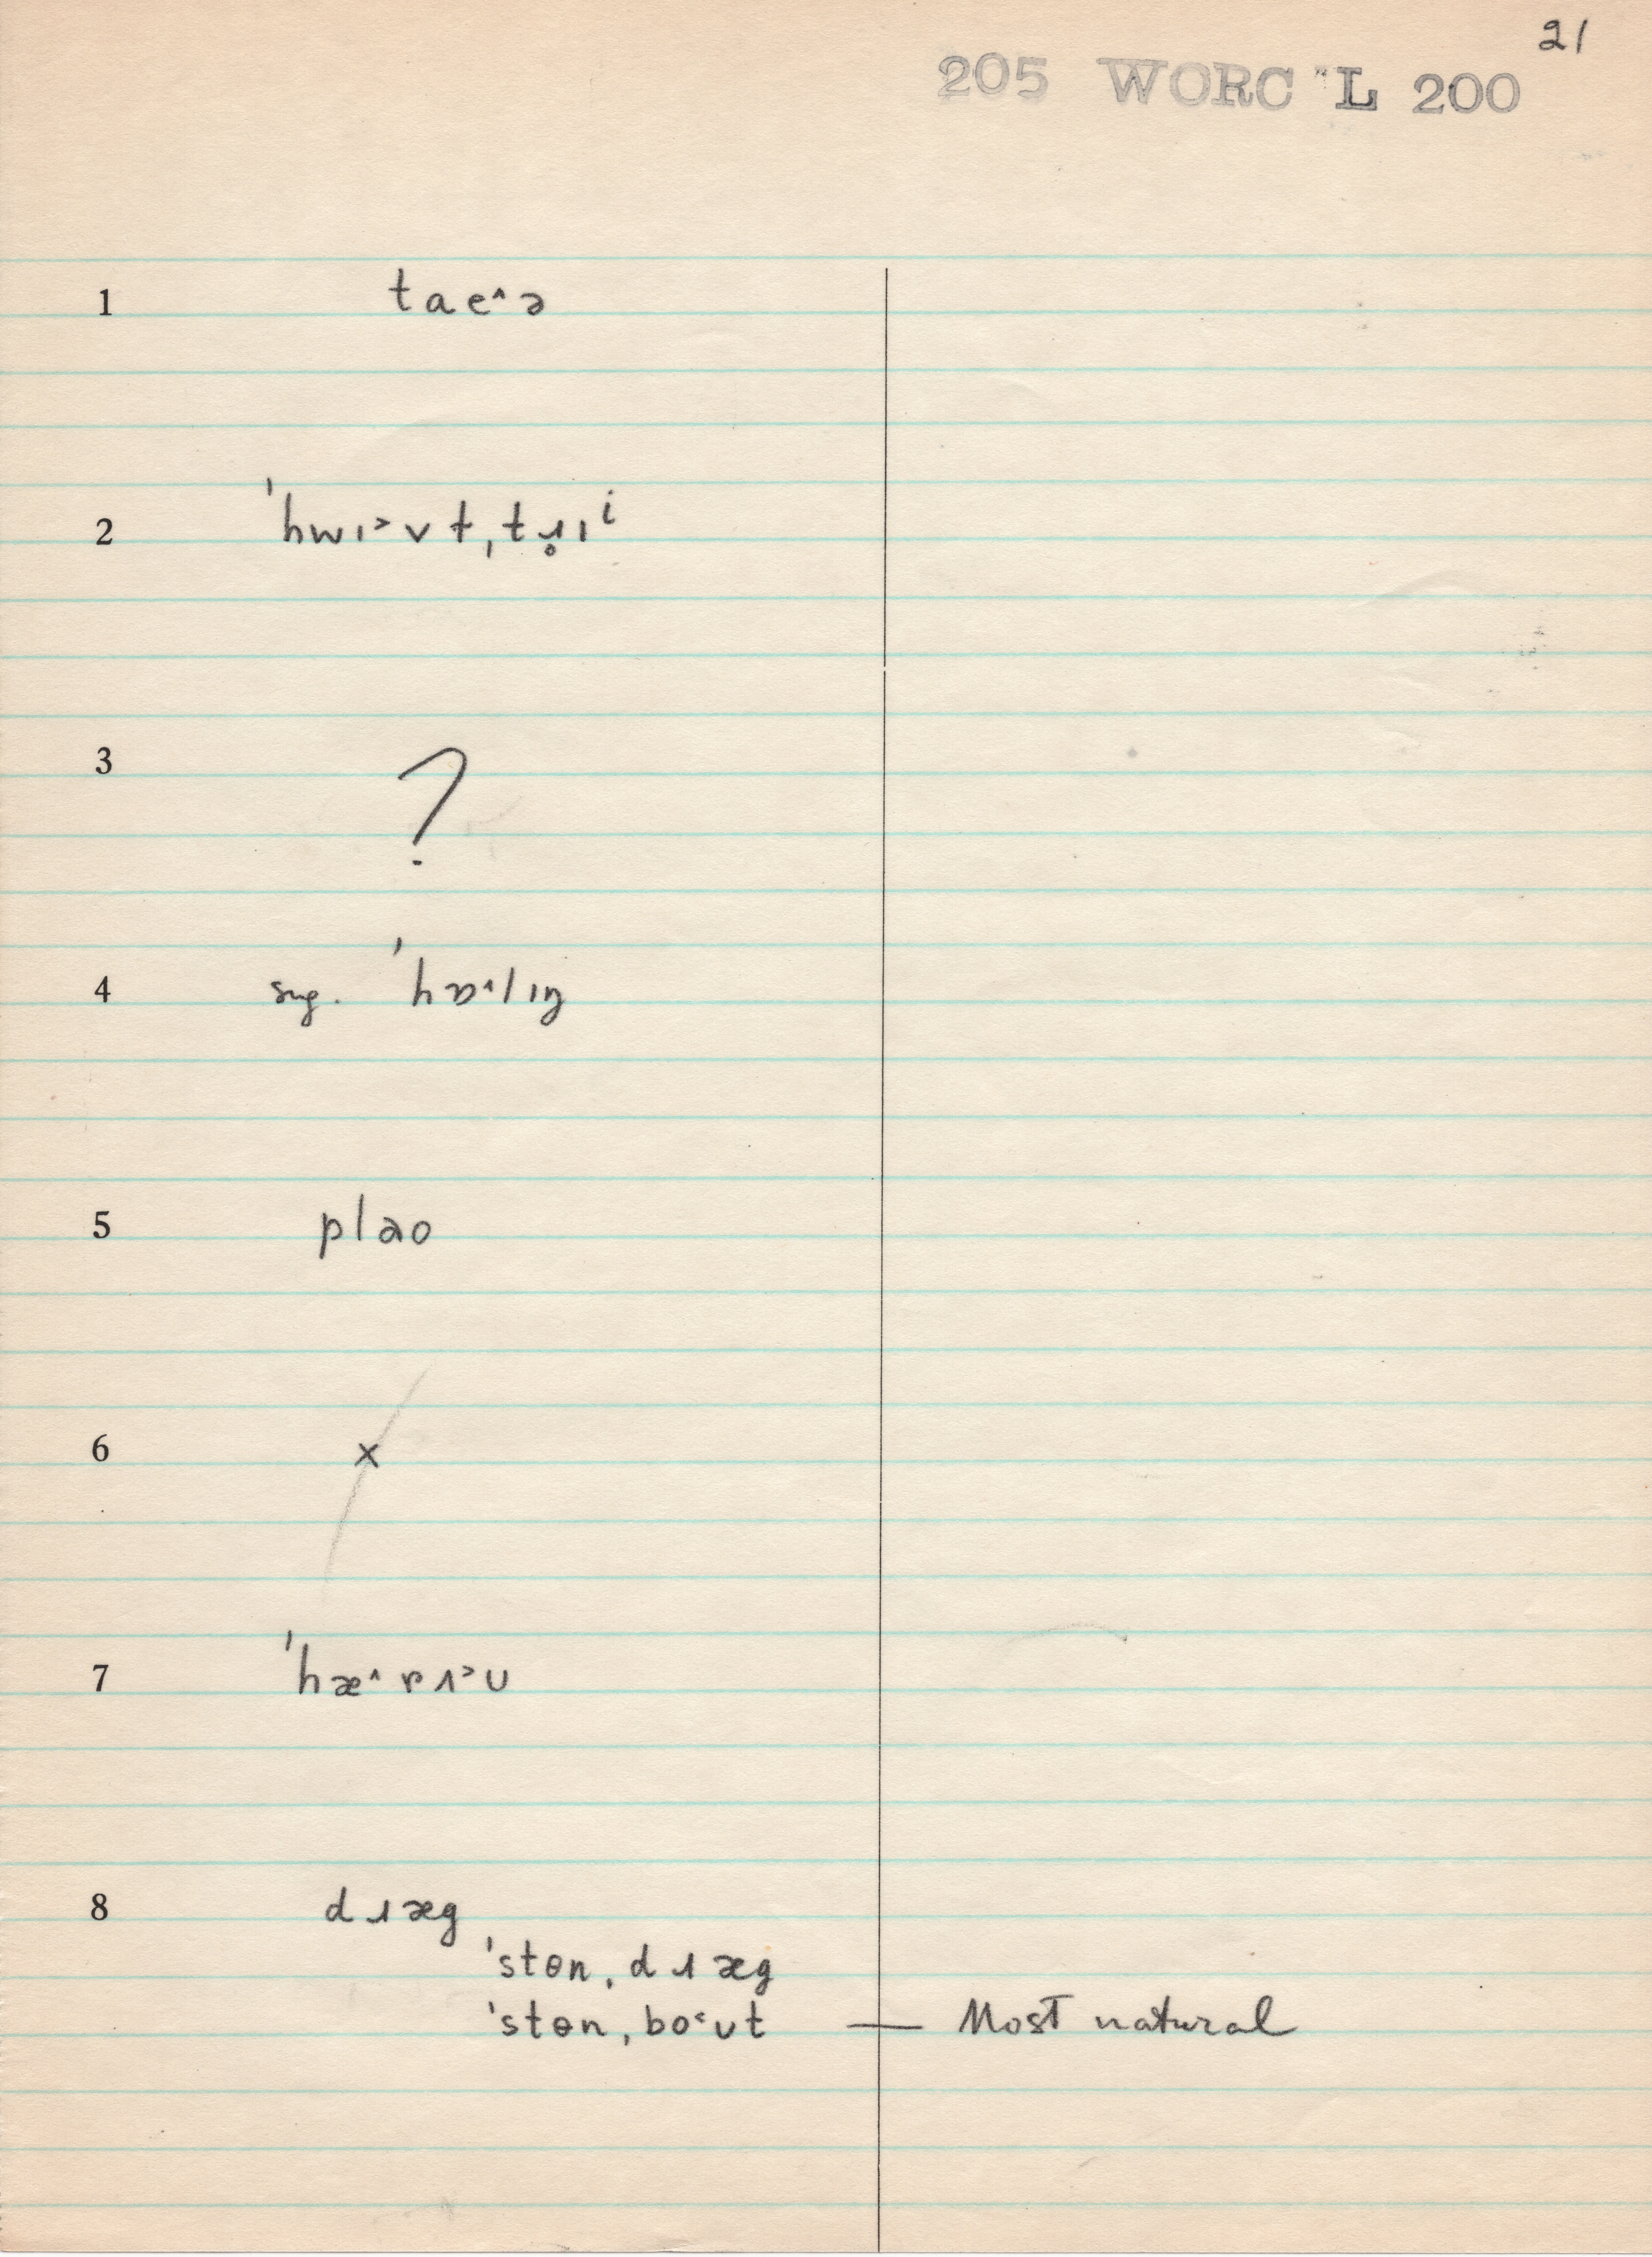 21
205 WORC L 200
1 tae^ə
2 ˈhwɪ˃vtˌtɹ̥ɪⁱ
3 ?
4 sug. ˈhɒ^lɪŋ
5 plao
6 x
7 ˈhæ^rʌ˃ᴜ
8 dɹæg
ˈstɵnˌdɹæg
ˈstɵnˌbo˂ᴜt — Most natural